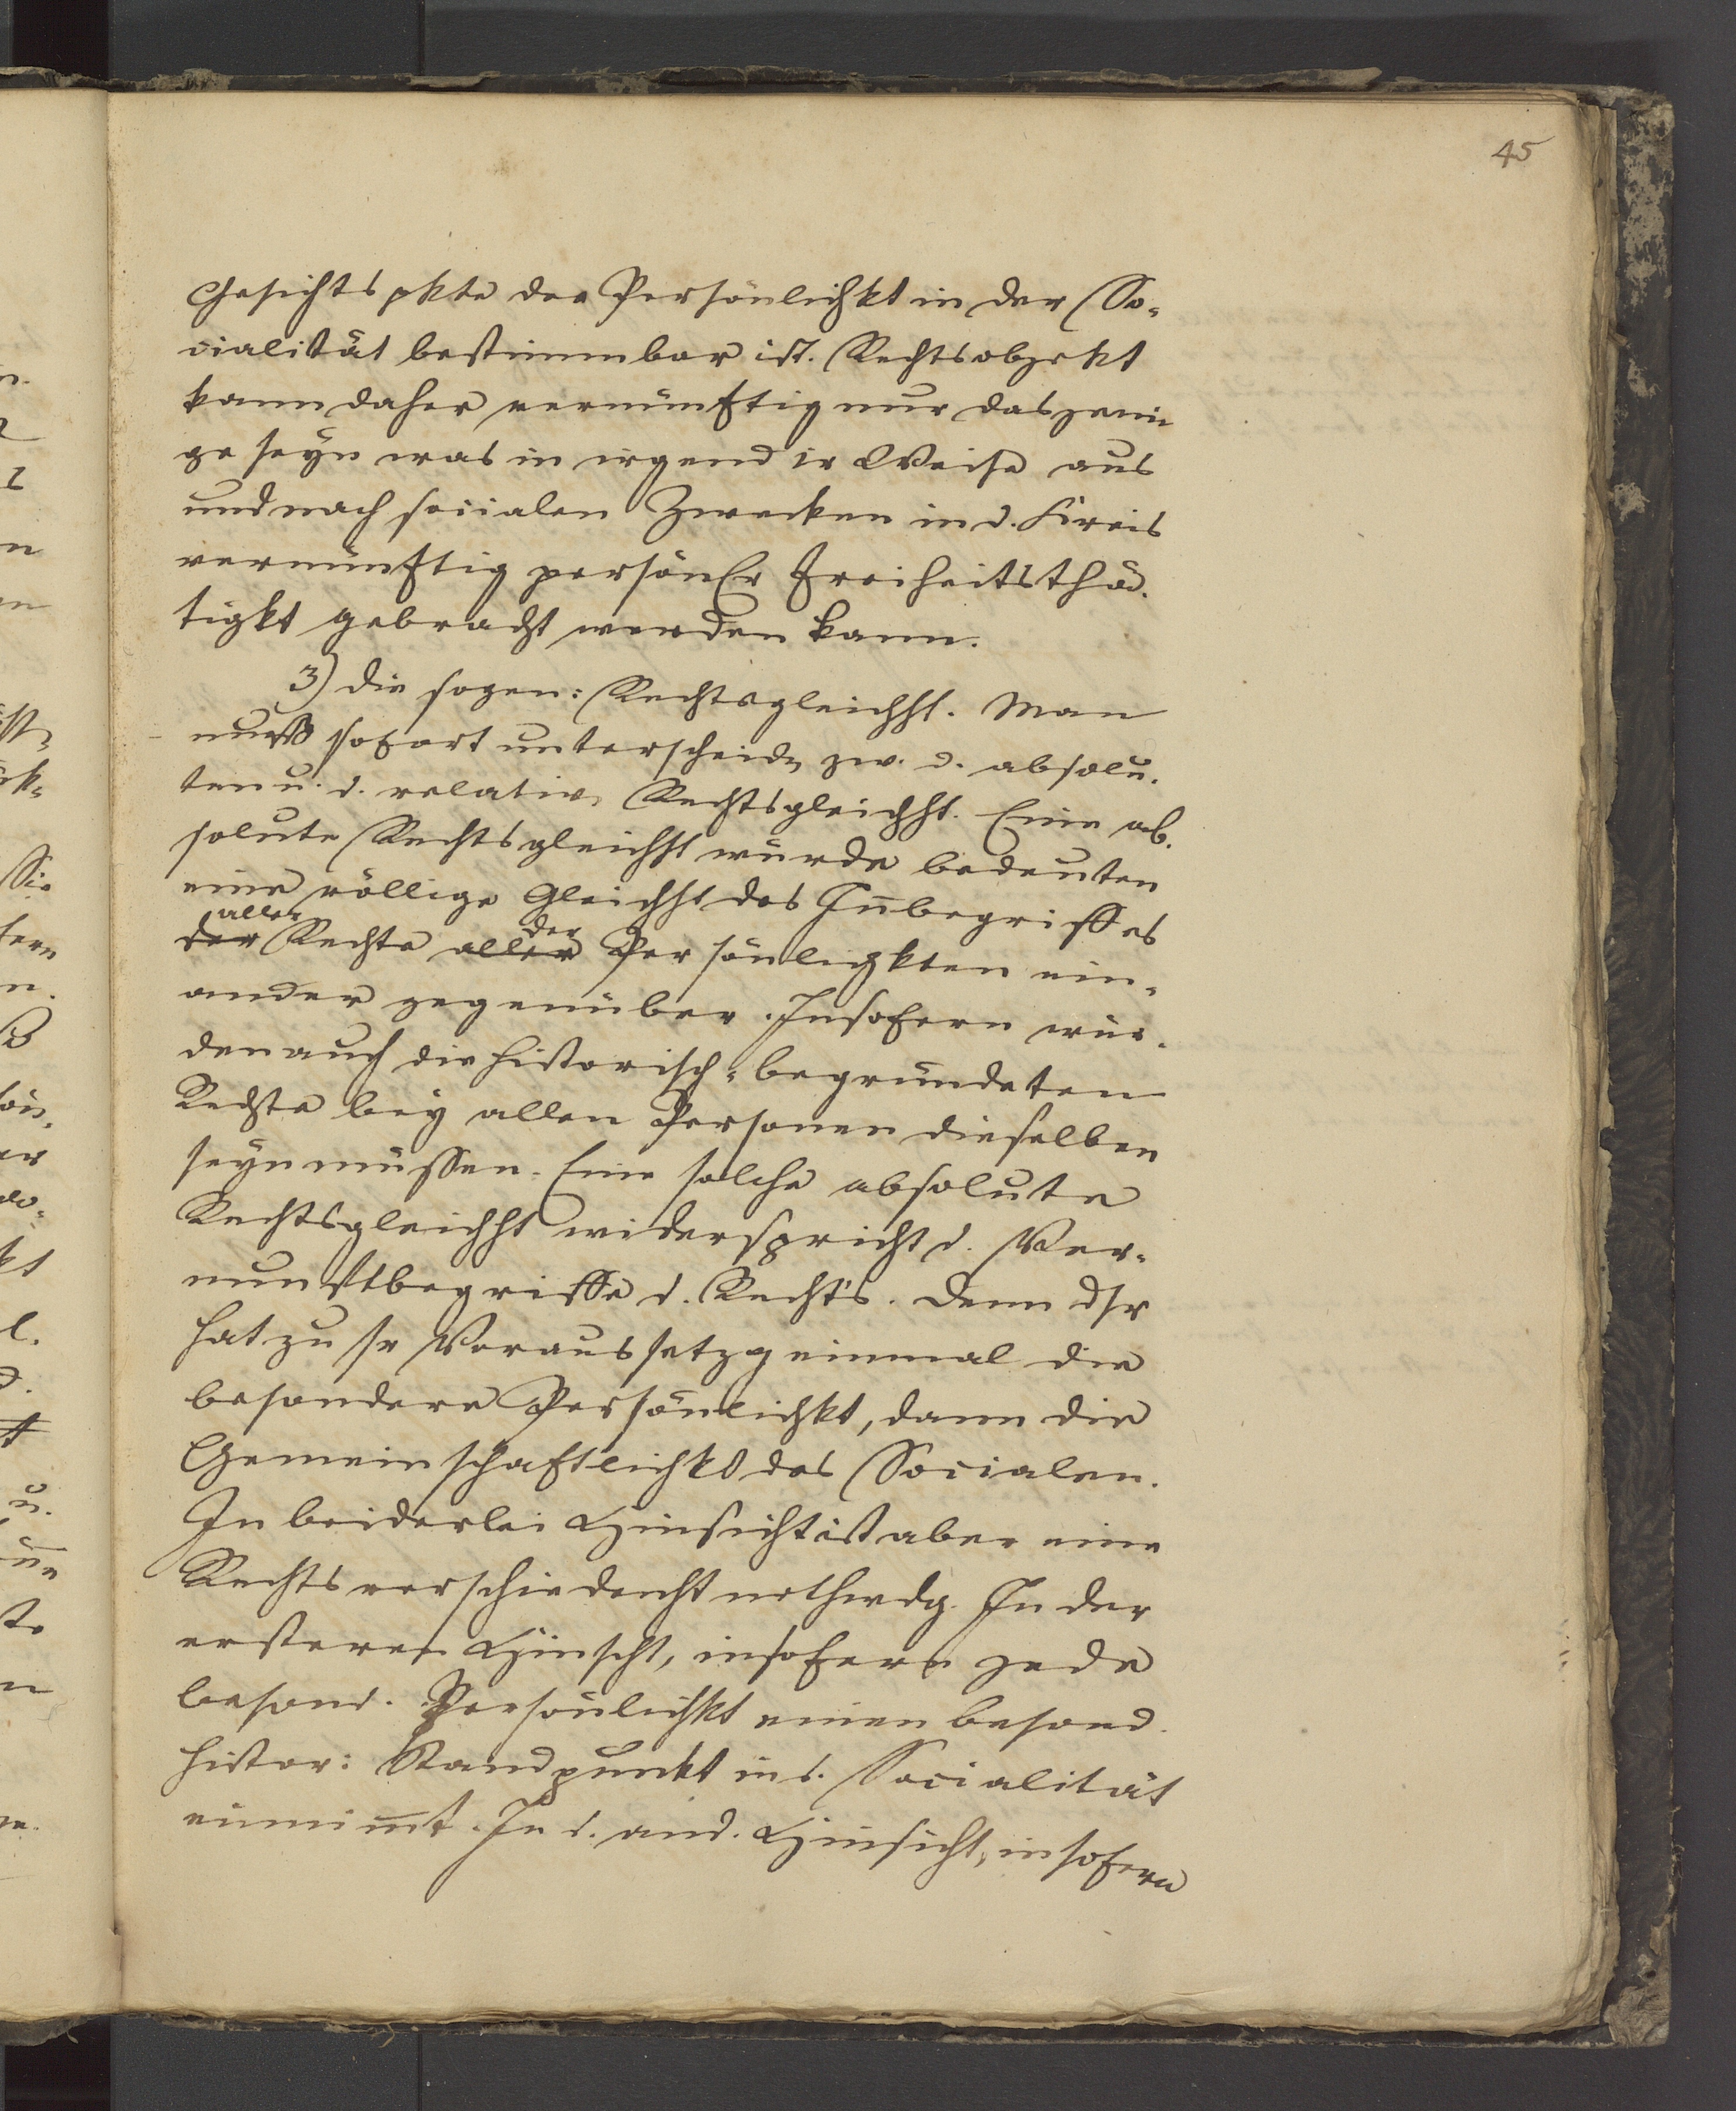 45
Gesichtspkte der Persönlichkt in der So-
cialität bestimmbar ist. Rechtsobjekt
kann daher vernünftig nur dasjeni
ge seyn was in irgend ir Weise aus
und nach socialen Zwecken in d. Kreis
vernünftig persönlr Freiheitsthä-
tigkt gebracht werden kann.
3) die sogen: Rechtsgleichht. Man
muß sofort unterscheidn zw. d. absolu-
ten u. d. relativn Rechtsgleichht. Eine ab-
solute Rechtsgleichht würde bedeuten
eine völlige Gleichht des Inbegriffes
aller der
der Rechte aller Persönlichkten ein-
ander gegenüber. Insofern wür-
den auch die historisch-begründeten
Rechte bey allen Personen dieselben
seyn müssen. Eine solche absolute
Rechtsgleichht widerspricht d. Ver-
nunftbegriffe d. Rechts. Denn dsr
hat zu sr Voraussetzg einmal die
besondere Persönlichkt, dann die
Gemeinschaftlichkt des Socialen.
In beiderlei Hinsicht ist aber eine
Rechtsverschiedenht nothwdg. In der
ersteren Hinscht, insofern jede
besond. Persönlichkt einen besond.
histor: Standpunkt in d. Socialität
einnimt. In d. and. Hinsicht, insofern